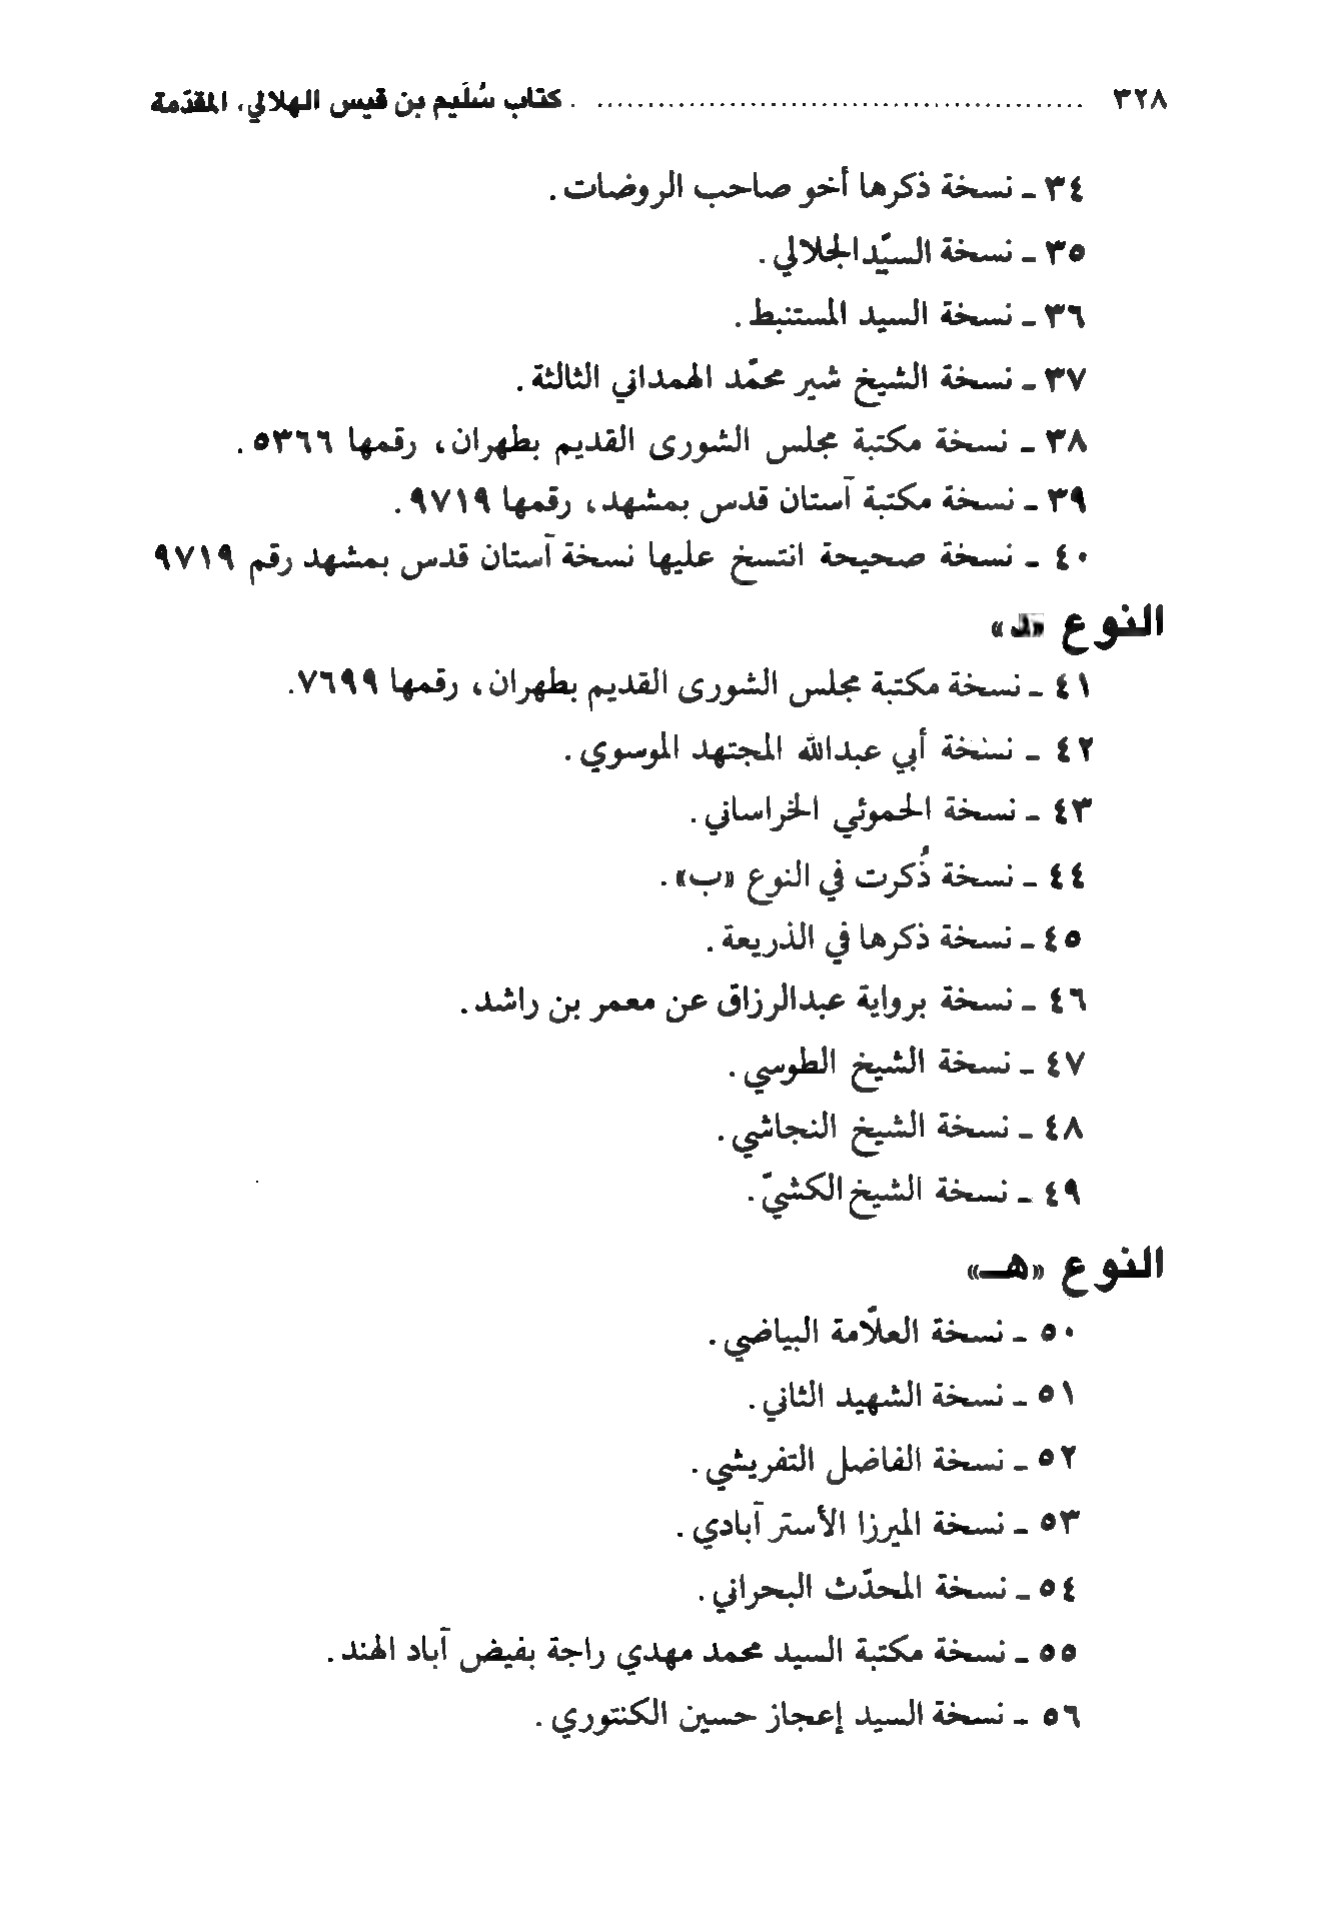 ٣٢٨ ........................................ كتاب سُلَيم بن قيس الهلالي، المقدّمة
٣٤ ـ نسخة ذكرها أخو صاحب الروضات.
٣٥ ـ نسخة السيّد الجلالي.
٣٦ ـ نسخة السيد المستنبط.
٣٧ ـ نسخة الشيخ شير محمّد الهمداني الثالثة.
٣٨ ـ نسخة مكتبة مجلس الشورى القديم بطهران، رقمها ٥٣٦٦.
٣٩ ـ نسخة مكتبة آستان قدس بمشهد، رقمها ٩٧١٩.
٤٠ ـ نسخة صحيحة انتسخ عليها نسخة آستان قدس بمشهد رقم ٩٧١٩
النوع «د»
٤١ ـ نسخة مكتبة مجلس الشورى القديم بطهران، رقمها ٧٦٩٩.
٤٢ ـ نسخة أبي عبدالله المجتهد الموسوي.
٤٣ ـ نسخة الحموئي الخراساني.
٤٤ ـ نسخة ذُكرت في النوع «ب».
٤٥ ـ نسخة ذكرها في الذريعة.
٤٦ ـ نسخة برواية عبدالرزاق عن معمر بن راشد.
٤٧ ـ نسخة الشيخ الطوسي.
٤٨ ـ نسخة الشيخ النجاشي.
٤٩ ـ نسخة الشيخ الكشيّ.
النوع «هـ»
٥٠ ـ نسخة العلّامة البياضي.
٥١ ـ نسخة الشهيد الثاني.
٥٢ ـ نسخة الفاضل التفريشي.
٥٣ ـ نسخة الميرزا الأسترآبادي.
٥٤ ـ نسخة المحدّث البحراني.
٥٥ ـ نسخة مكتبة السيد محمد مهدي راجة بفيض آباد الهند.
٥٦ ـ نسخة السيد إعجاز حسين الكنتوري.